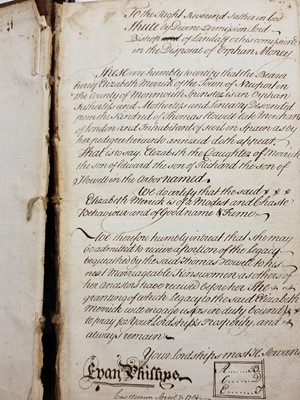 To the Right Reverend Father in God
Shute by Divine Permission Lord
Bishop of Landaff & his Commissioners
in the Disposal of Orphan Money
These are humbly to certify that the Bearer
hereof Elizabeth Morrick of the Town of Newport in
the County of Monmouth Spinster is an Orphan
Fatherless and Motherless and lineally Descended
from the Kindred of Thomas Howell late Merchant
of London and Inhabitant of Sivil in Spain as by
her pedigree hereunto annexed doth appear
That is to say Elizabeth the Daughter of Morrick
the son of Edward the son of Richard the son of
Howell in the Tabor named
We do certify that the said
Elizabeth Morrick is of a Modest and Chaste
Behaviour and of Good name & Fame
We therefore humbly intreat that She may
be admitted to receive a portion of the Legacy
bequeathed by the said Thomas Howell to his
next Marriageable Kinswomen as others of
her Ancestors have received before her The
granting of which Legacy to the said Elizabeth
Morrick will engage us as in duty bound
to pray for your Lordships Prosperity and
always remain
Your Lordships most H. Servants
Evan Phillips